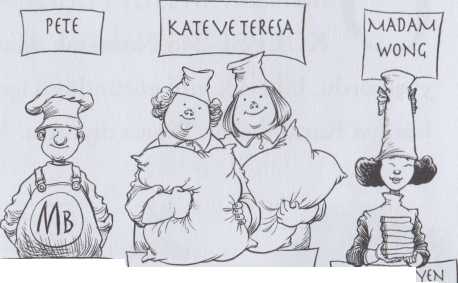 PETE
KATE VE TERESA
MADAM
WONG
MB
YEN